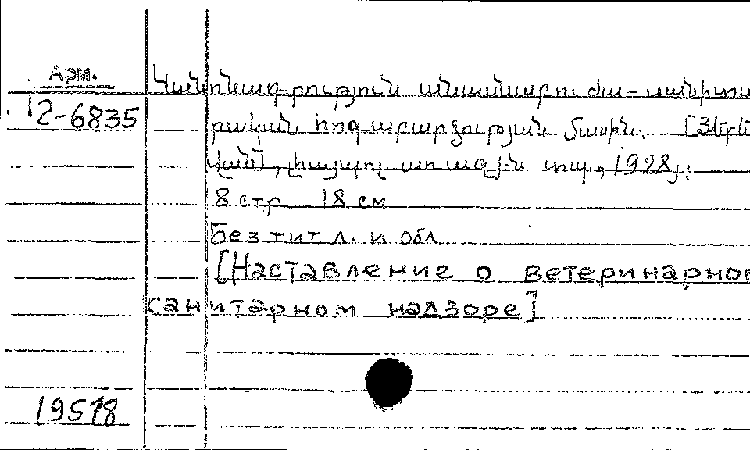 Арм.
12-6835
Կանոնադրություն անասնաբուժա-սանիտա
րական հոգաբարձության մասին. [Յերե
վան], Հայպոլ առաջին տպ., 1928թ.:
8 стр 18 см
Без тит л. и обл
[Наставление о ветеринарно
санитарном надзоре]
19578